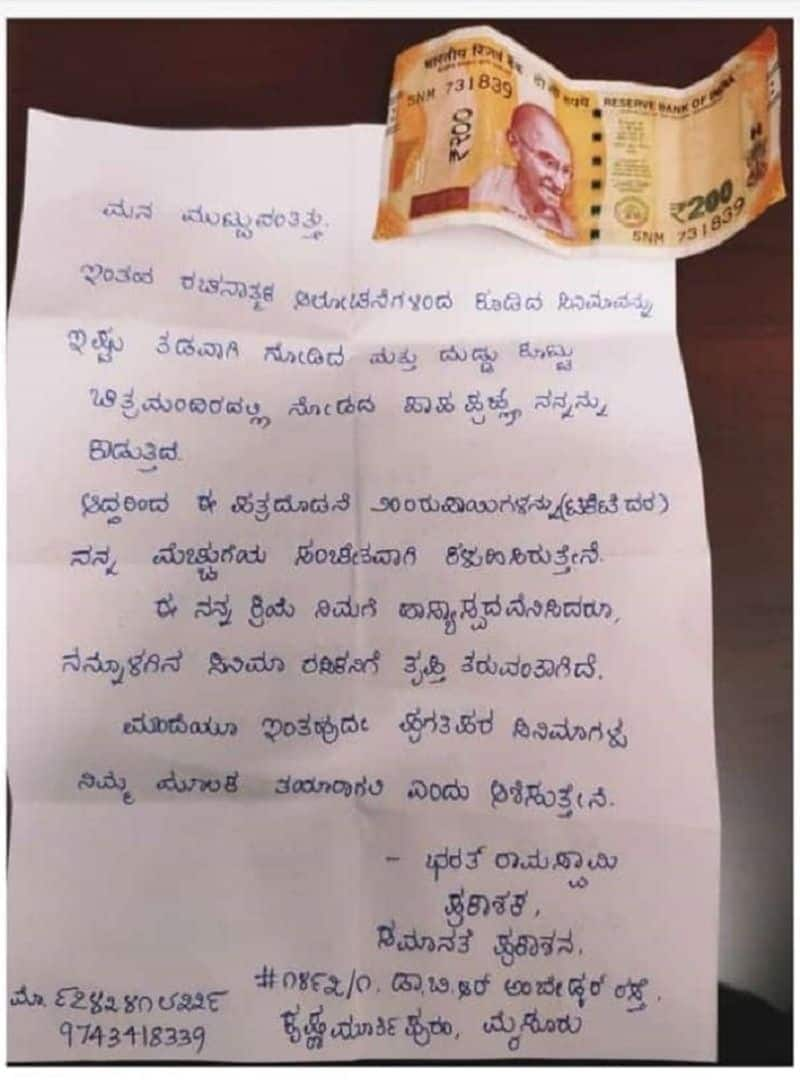 भारतीय रिज़र्व बैंक
5NM 731839
₹२००
RESERVE BANK OF INDIA
₹200
5NM 731839
ಮನ ಮುಟ್ಟುವಂತಿತ್ತು.
ಇಂತಹ ರಚನಾತ್ಮಕ ಆಲೋಚನೆಗಳಿಂದ ಕೂಡಿದ ಸಿನಿಮಾವನ್ನು
ಇಷ್ಟು ತಡವಾಗಿ ನೋಡಿದ ಮತ್ತು ದುಡ್ಡು ಕೊಟ್ಟು
ಚಿತ್ರಮಂದಿರದಲ್ಲಿ ನೋಡದ ಪಾಪ ಪ್ರಜ್ಞೆ ನನ್ನನ್ನು
ಕಾಡುತ್ತಿದೆ.
ಆದ್ದರಿಂದ ಈ ಪತ್ರದೊಡನೆ ೨೦೦ರುಪಾಯಿಗಳನ್ನು(ಟಿಕೆಟಿನ ದರ)
ನನ್ನ ಮೆಚ್ಚುಗೆಯ ಸಂಕೇತವಾಗಿ ಕಳುಹಿಸಿರುತ್ತೇನೆ.
ಈ ನನ್ನ ಕ್ರಿಯೆ ನಿಮಗೆ ಹಾಸ್ಯಾಸ್ಪದವೆನಿಸಿದರೂ,
ನನ್ನೊಳಗಿನ ಸಿನಿಮಾ ರಸಿಕನಿಗೆ ತೃಪ್ತಿ ತರುವಂತಾಗಿದೆ.
ಮುಂದೆಯೂ ಇಂತಹುದೇ ಪ್ರಗತಿಪರ ಸಿನಿಮಾಗಳು
ನಿಮ್ಮ ಮೂಲಕ ತಯಾರಾಗಲಿ ಎಂದು ಆಶಿಸುತ್ತೇನೆ.
- ಭರತ್ ರಾಮಸ್ವಾಮಿ
ಪ್ರಕಾಶಕ,
ಸಮಾನತೆ ಪ್ರಕಾಶನ,
#೧೪೯೨/೧, ಡಾ.ಬಿ.ಆರ್ ಅಂಬೇಡ್ಕರ್ ರಸ್ತೆ,
ಕೃಷ್ಣಮೂರ್ತಿಪುರಂ, ಮೈಸೂರು
ಮೊ.
9743418339